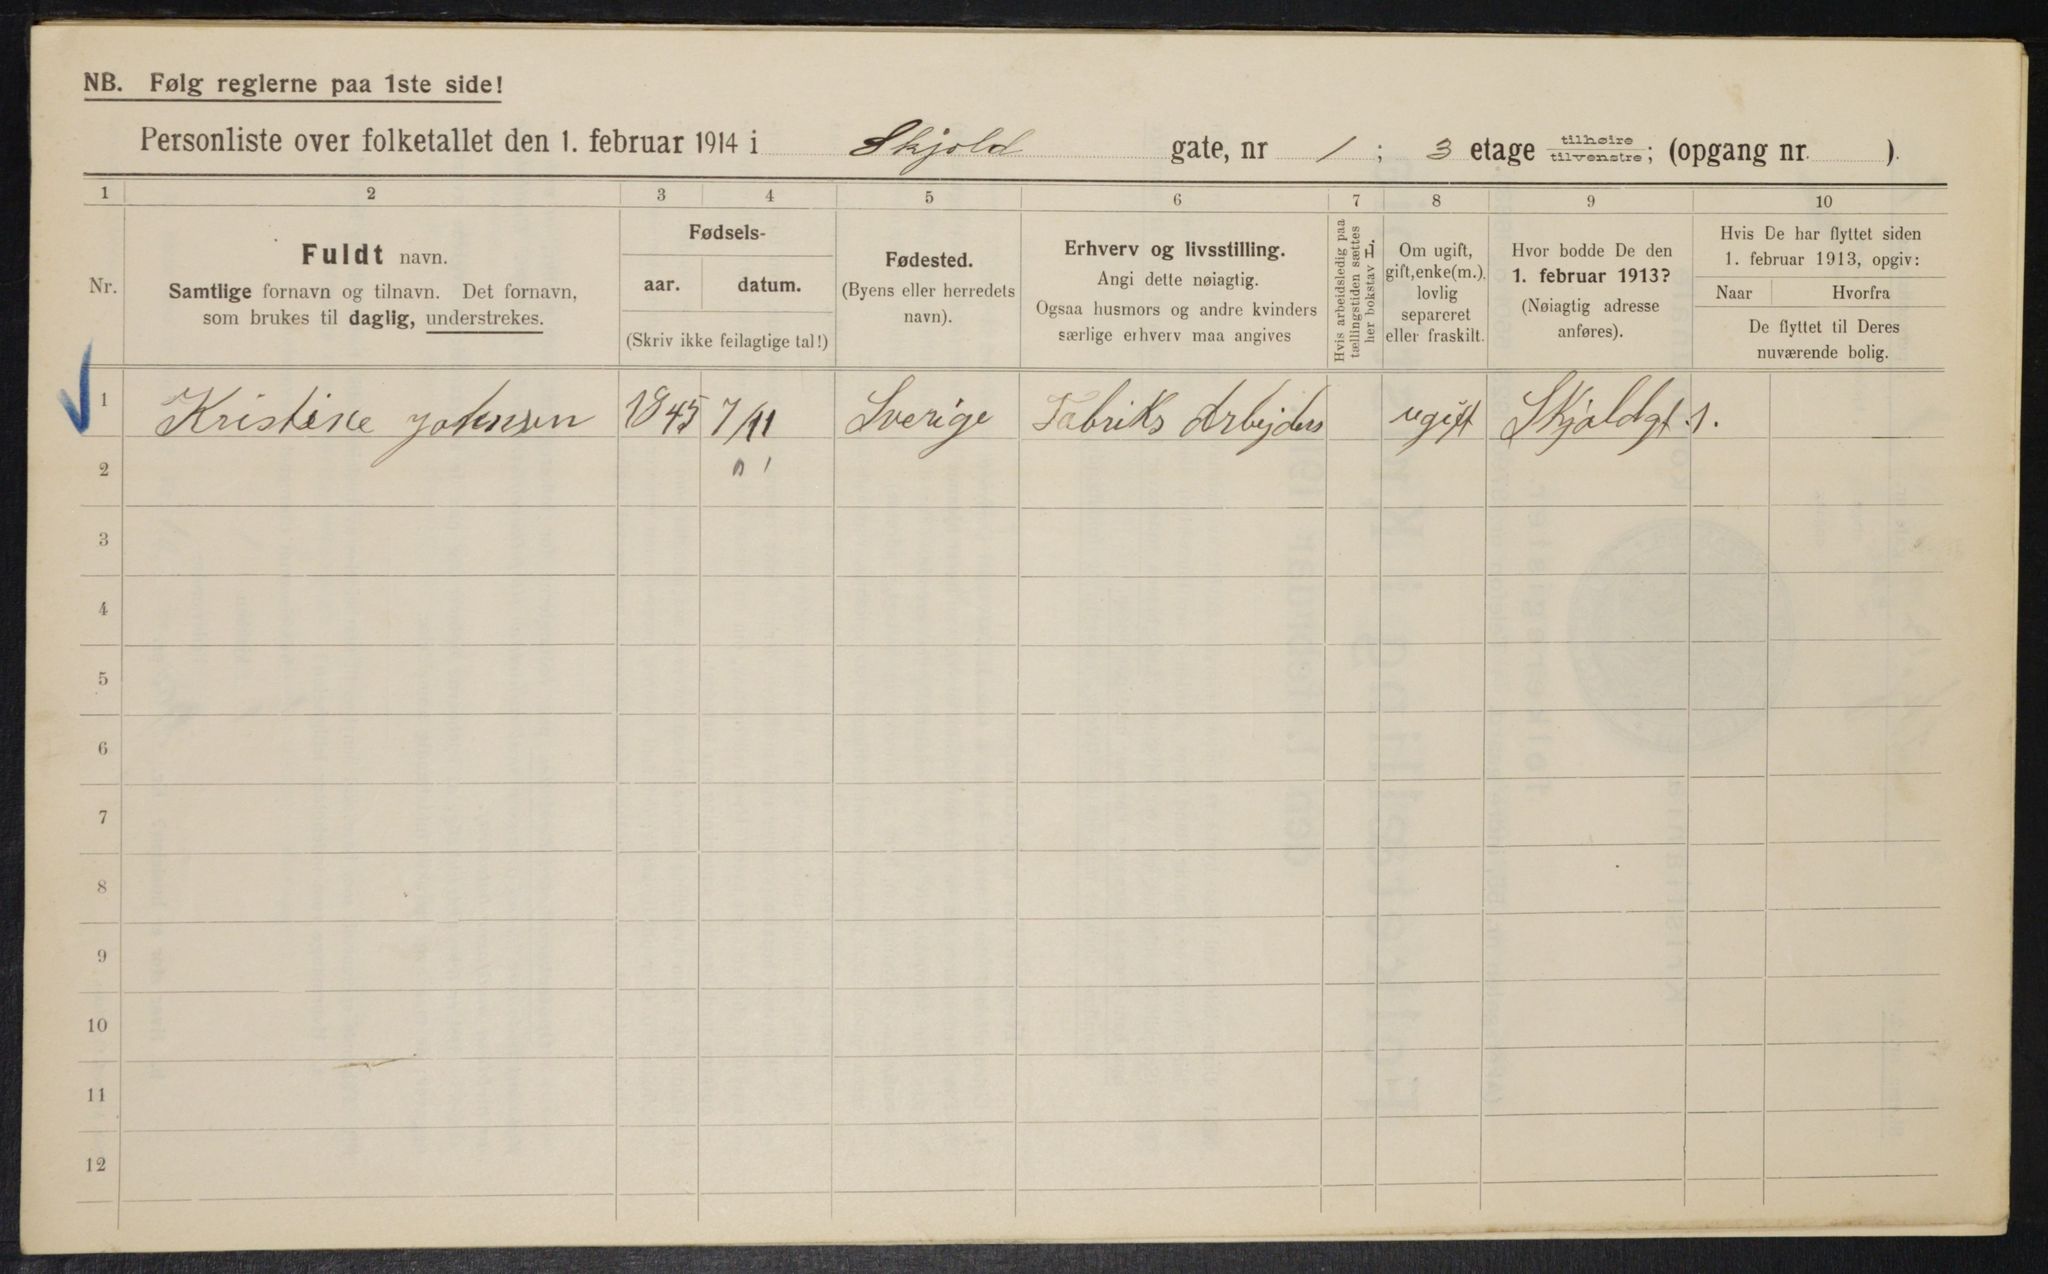 NB. Følg reglerne paa 1ste side!
Personliste over folketallet den 1. februar 1914 i Skjold gate, nr 1; 3 etage tilhøire tilvenstre; (opgang nr. ).
1 2 3 4 5 6 7 8 9 10
Nr.
Fuldt navn.
Samtlige fornavn og tilnavn. Det fornavn,
som brukes til daglig, understrekes.
Fødsels-
aar. datum.
(Skriv ikke feilagtige tal!)
Fødested.
(Byens eller herredets
navn).
Erhverv og livsstilling.
Angi dette nøiagtig.
Ogsaa husmors og andre kvinders
særlige erhverv maa angives
Hvis arbeidsledig paa
tællingstiden sættes
her bokstav L.
Om ugift,
gift, enke(m.).
lovlig
separeret
eller fraskilt.
Hvor bodde De den
1. februar 1913?
(Nøiagtig adresse
anføres).
Hvis De har flyttet siden
1. februar 1913, opgiv:
Naar Hvorfra
De flyttet til Deres
nuværende bolig.
1 Kristine Johnsen 1845 7/11 Sverige Fabriks Arbejders ugift Skjoldgt. 1.
2
3
4
5
6
7
8
9
10
11
12